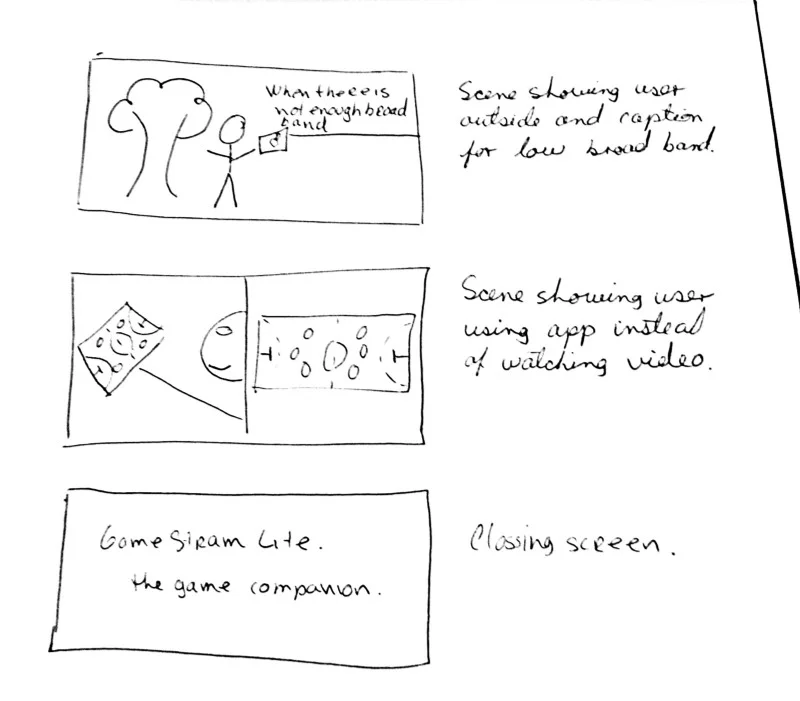 When there is
not enough broad
band
Scene showing user
outside and caption
for low broad band.
Scene showing user
using app instead
of watching video.
Game Stream Lite.
the game companion.
Clossing screen.